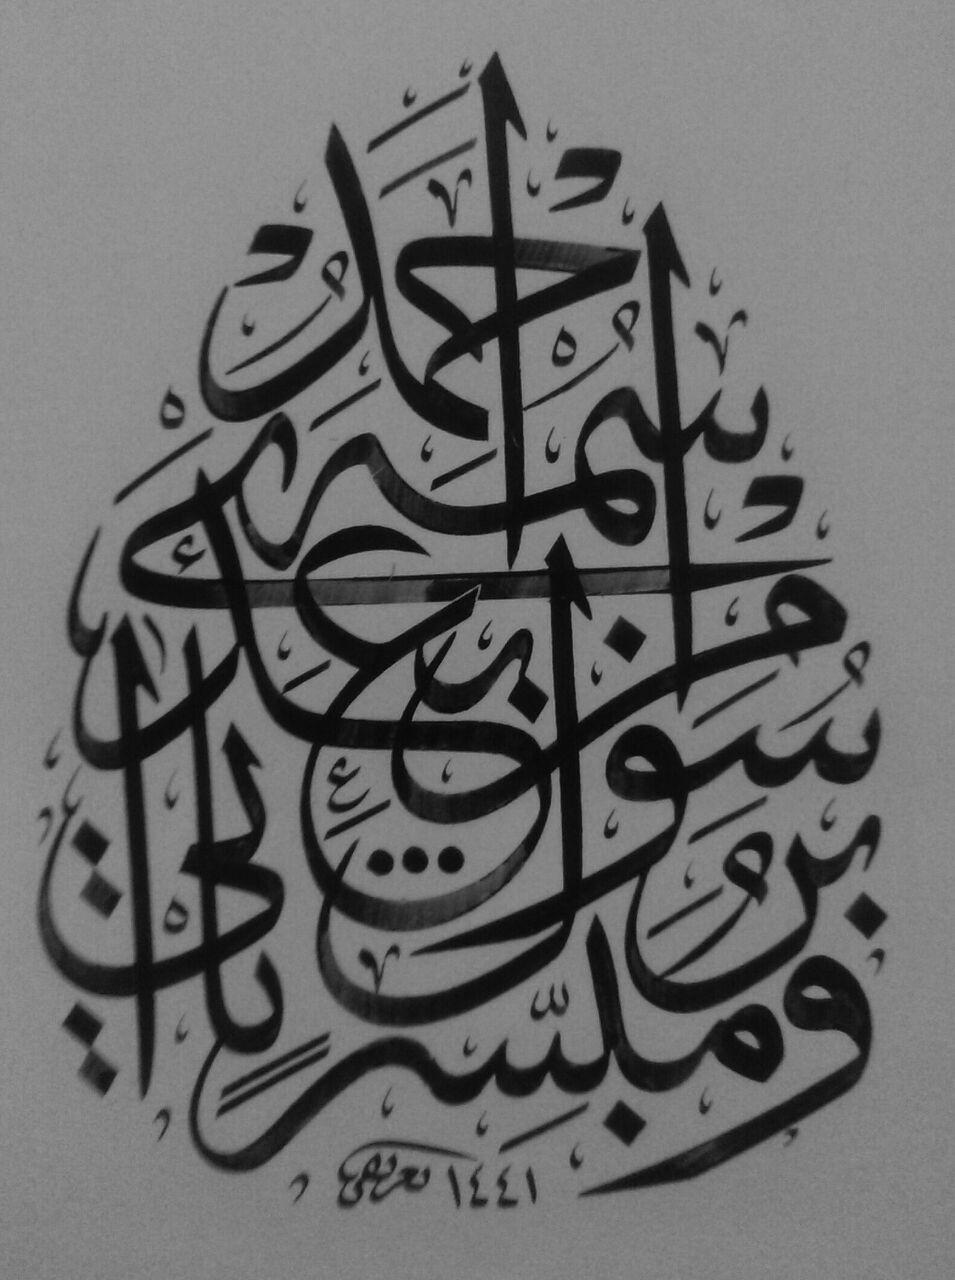 وَمُبَشِّرًا بِرَسُولٍ يَأْتِي مِنْ بَعْدِي اسْمُهُ أَحْمَدُ
١٤٤١